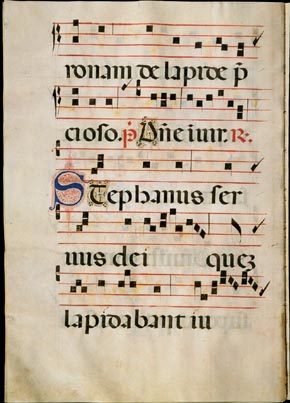 ronam de lapide p̄
cioso. p̄ Dn̄e iuir. R.
Stephanus ser
uus dei quez
lapidabant iu